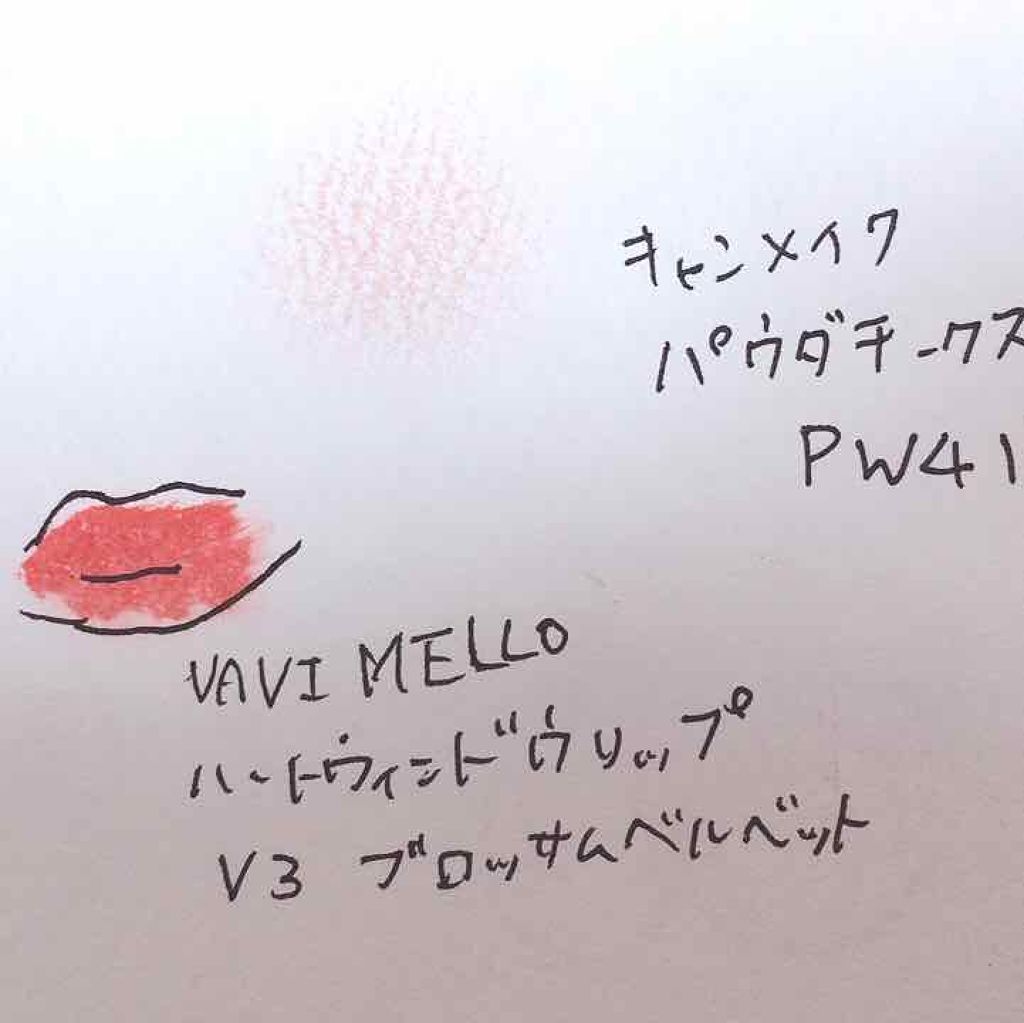 キャンメイク
パウダチークス
PW41
VAVI MELLO
ハートウィンドウリップ
V3 ブロッサムベルベット